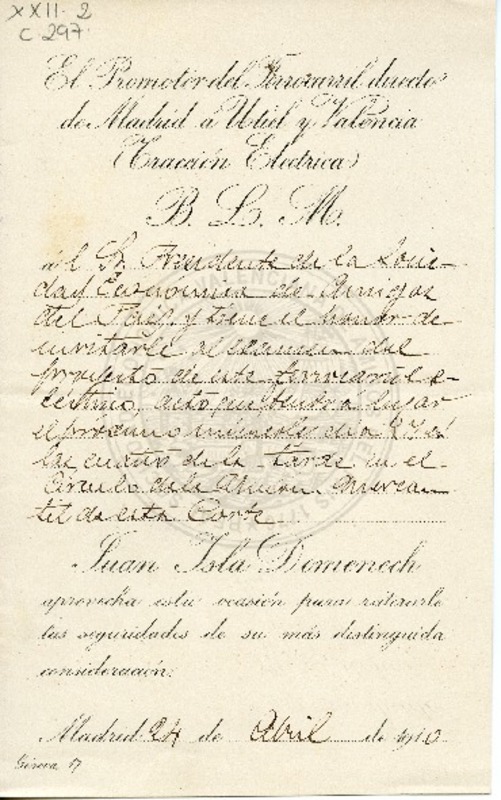 XXII-2
C-297
El Promotor del Ferrocarril directo
de Madrid á Utiel y Valencia
(Tracción Eléctrica)
B. L. M.
al Sr. Presidente de la Socie-
dad Económica de Amigos
del País, y tiene el honor de
invitarle al examen del
proyecto de este ferrocarril e-
lectrico, acto que tendra lugar
el próximo miercoles dia 27 á
las cuatro de la tarde en el
Círculo de la Unión Mercan-
til de esta Corte
Juan Isla Domenech
aprovecha esta ocasión para reiterarle
las seguridades de su más distinguida
consideración.
Madrid 24 de Abril de 1910
Génova, 17